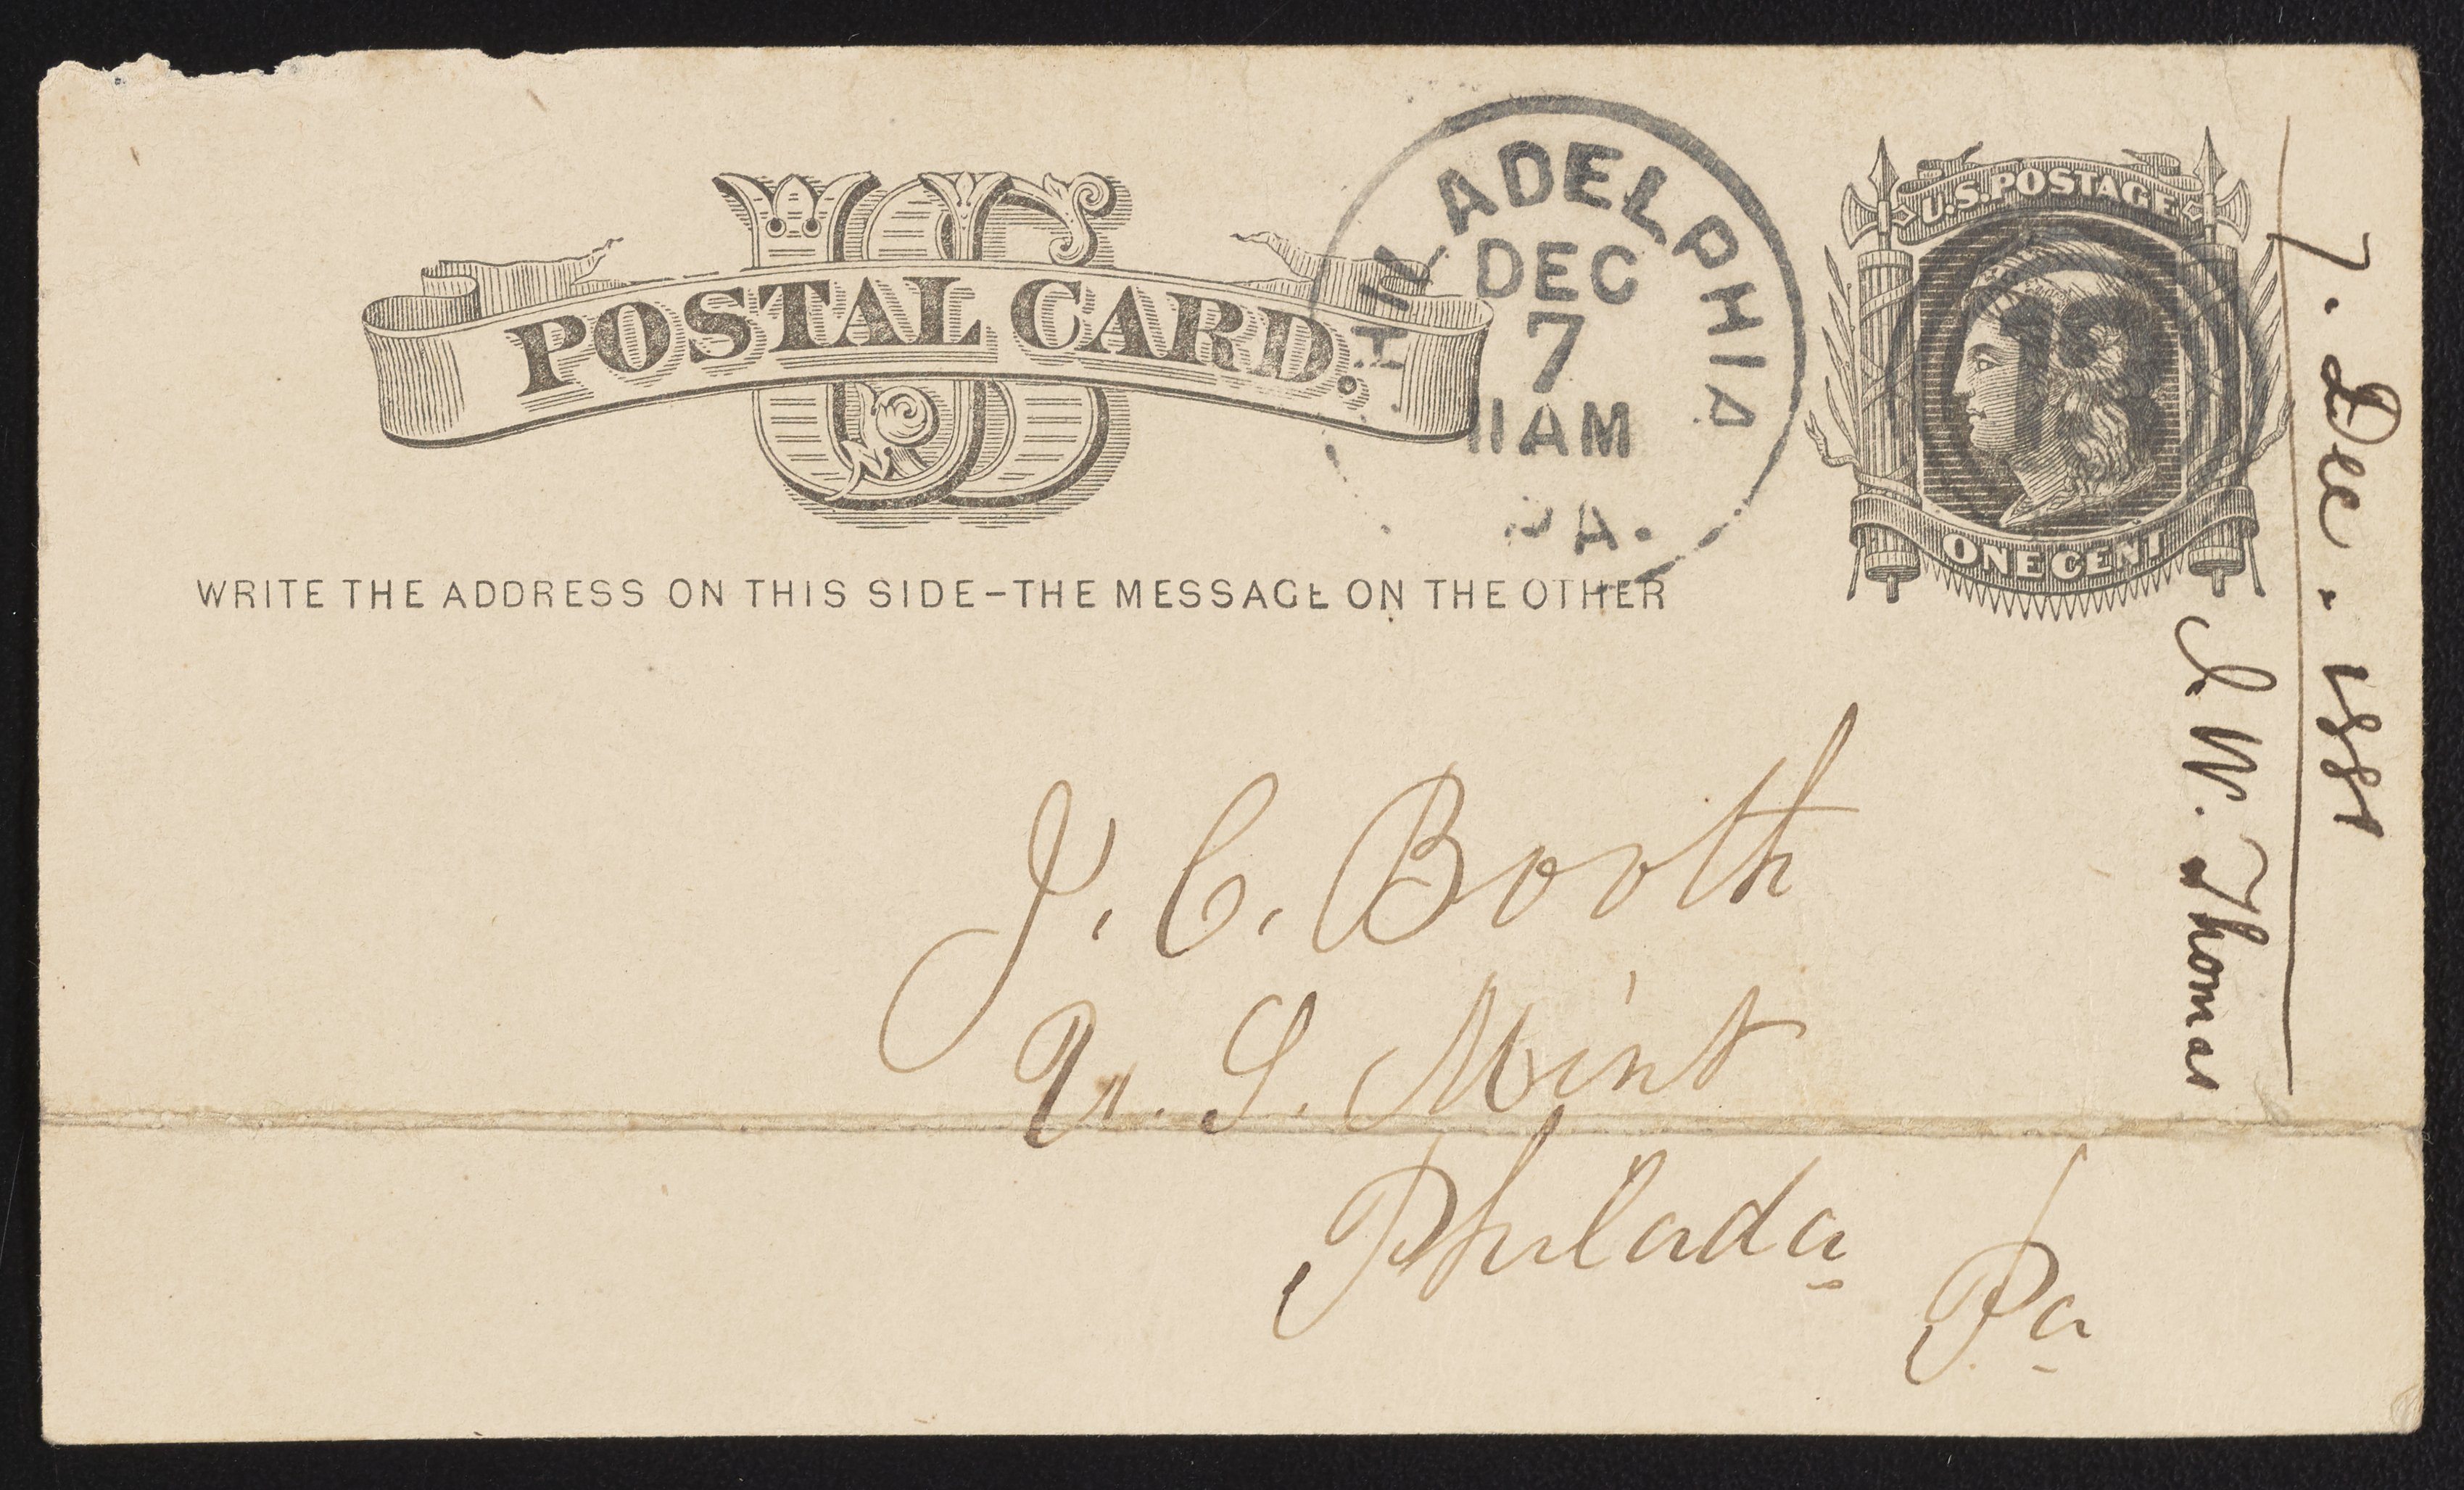 US
POSTAL CARD.
PHILADELPHIA
DEC
7
11AM
PA.
U.S. POSTAGE
ONE CENT
WRITE THE ADDRESS ON THIS SIDE-THE MESSAGE ON THE OTHER
J. C. Booth
U. S. Mint
Philada
Pa
7. Dec. 1881
J W. Thomas